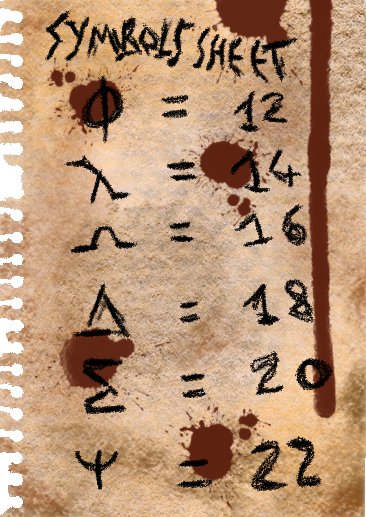 SYMBOLS SHEET
Φ = 12
λ = 14
Ω = 16
Δ = 18
Σ = 20
Ψ = 22